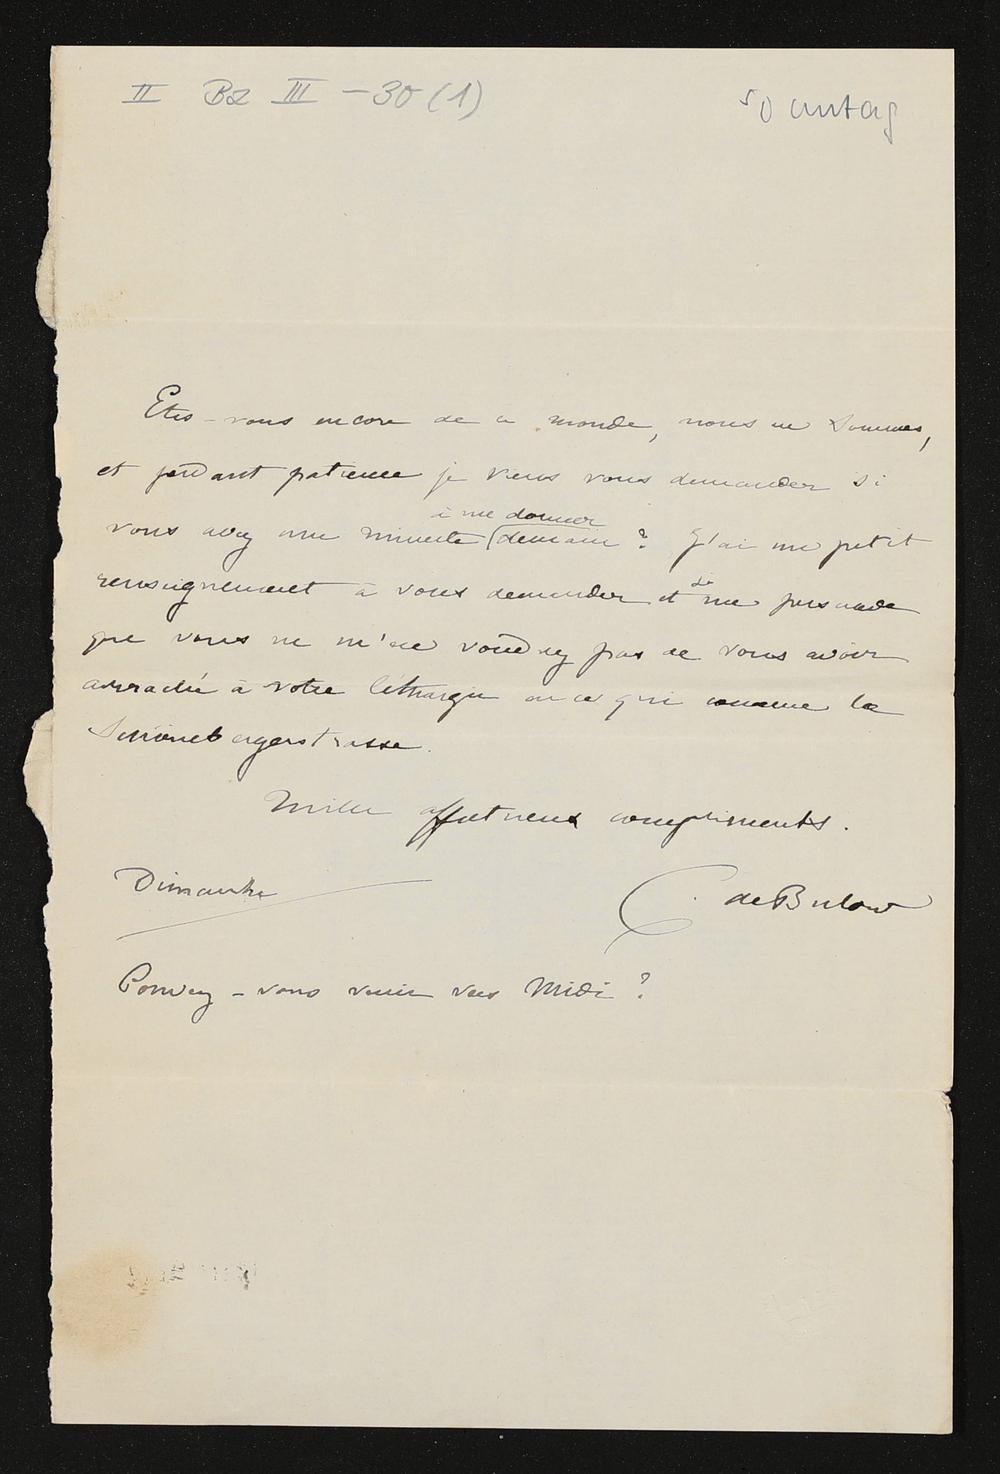 II Bz III - 30 (1)
Sonntag
Etes-vous encore de ce monde, nous en sommes,
et perdant patience je viens vous demander si
vous avez une minute à me donner demain ? J'ai un petit
renseignement à vous demander et je me persuade
que vous ne m'en voudrez pas de vous avoir
arraché à votre léthargie ou ce qui comme la
Schönebergerstrasse.
Mille affectueux compliments.
Dimanche
C. de Bulow
Pouvez-vous venir vers Midi ?